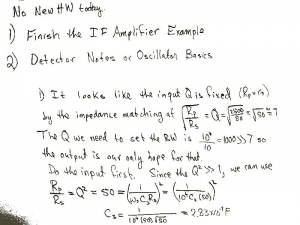 No New HW today.
1) Finish the IF Amplifier Example
2) Detector Notes or Oscillator Basics
1) It looks like the input Q is fixed (Rp=rs)
by the impedance matching at √(Rp/Rs) = Q = √50 = 7
The Q we need to set the BW is 10^6/10^4 = 100 >> 7 so
the output is our only hope for that.
Do the input first. Since the Q² >> 1, we can use
Rp/Rs = Q² = 50 = (1/(ω₀CsRs))² = (1/(10^6 Cs (50)))²
Cs = 1/(10^6 (50) √50) = 2.83x10^-9 F